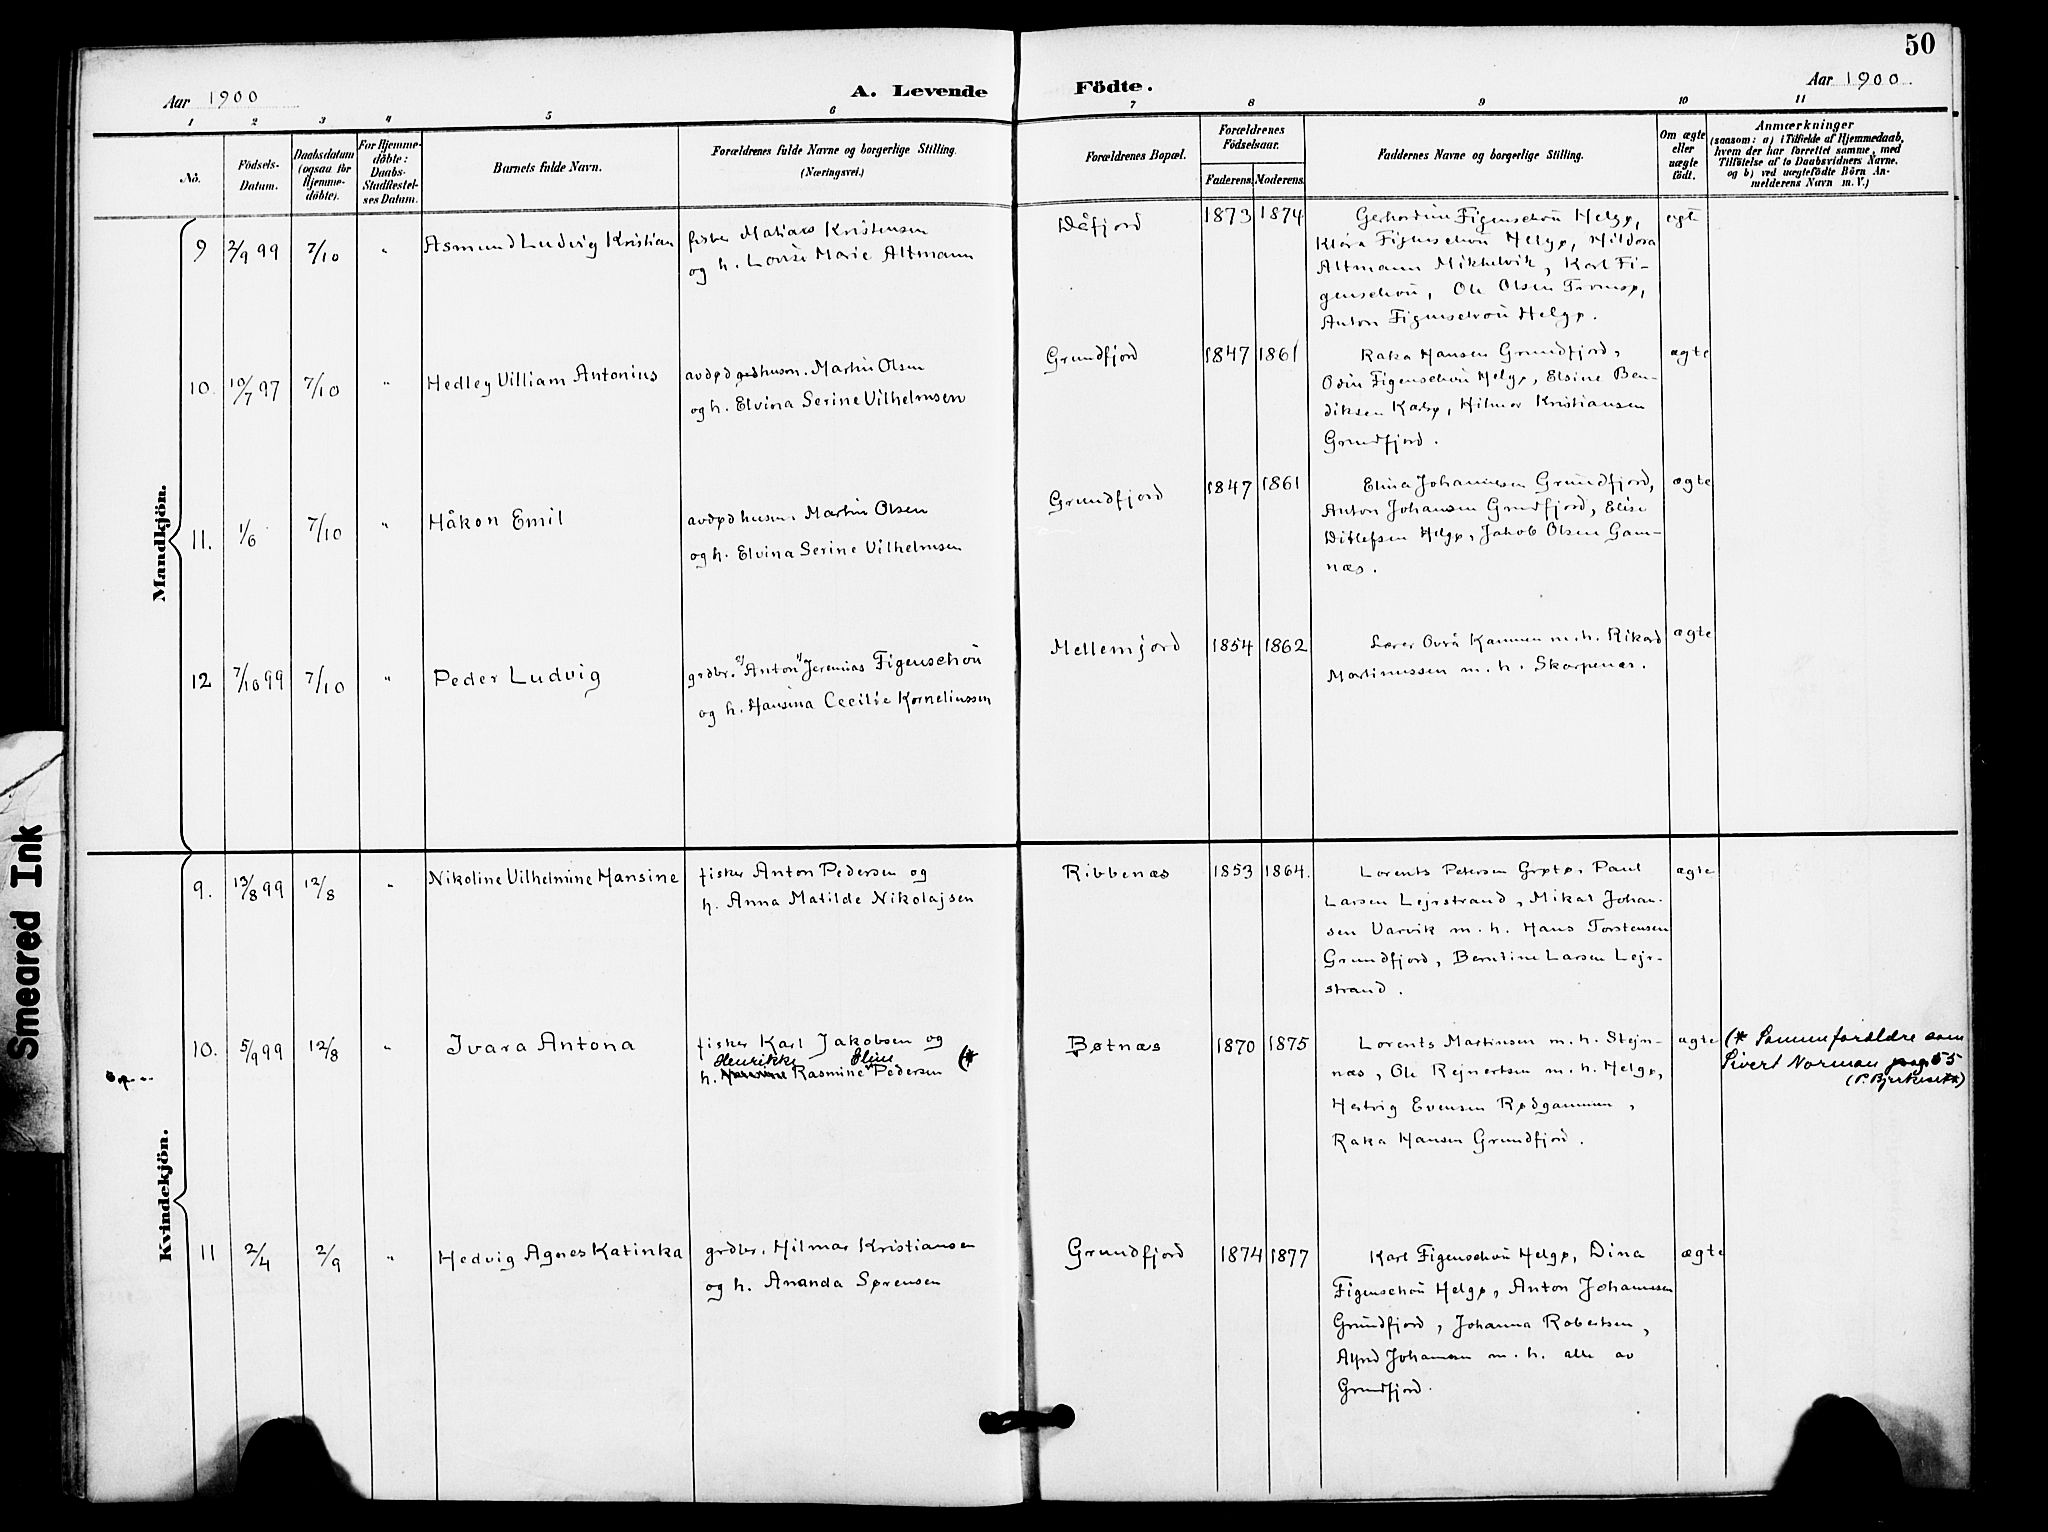 50
Aar 1900
A. Levende
Födte.
Aar 1900
1 2 3 4 5 6 7 8 9 10 11
No.
Födsels-
Datum.
Daabsdatum
(ogsaa for
Hjemme-
döbte).
For Hjemme-
döbte:
Daabs-
Stadfæstel-
ses Datum.
Barnets fulde Navn.
Forældrenes fulde Navne og borgerlige Stilling.
(Næringsvei.)
Forældrenes Bopæl.
Forældrenes
Födselsaar.
Faderens. Moderens.
Faddernes Navne og borgerlige Stilling.
Om ægte
eller
uægte
födt.
Anmærkninger
(saasom: a) i Tilfælde af Hjemmedaab,
hvem der har forrettet samme, med
Tilföielse af to Daabsvidners Navne.
og b) ved uægtefödte Börn An-
melderens Navn m. V.)
Mandkjön.
9 2/9 99 7/10 " Asmund Ludvig Kristian
fisker Matias Kristensen
og h. Lovise Marie Altmann
Dåfjord 1873 1874
Gerhardine Figenschou Helgø,
Klara Figenschou Helgø, Hildora
Altmann Mikkelvik, Karl Fi-
genschou, Ole Olsen Tromsø,
Anton Figenschou Helgø.
ægte
10. 19/7 97 7/10 " Hedley Villiam Antonius
avdød husm. Martin Olsen
og h. Elvina Serine Vilhelmsen
Grundfjord 1847 1861
Raka Hansen Grundfjord,
Odin Figenschou Helgø, Elsine Ben-
diksen Karlsø, Hilmar Kristiansen
Grundfjord.
ægte
11. 1/6 7/10 " Håkon Emil
avdød husm. Martin Olsen
og h. Elvina Serine Vilhelmsen
Grundfjord 1847 1861
Elina Johannesen Grundfjord,
Anton Johansen Grundfjord, Elise
Ditlefsen Helgø, Jakob Olsen Gam-
næs.
ægte
12 7/10 99 7/10 " Peder Ludvig
grdbr. Anton Jeremias Figenschou
og h. Hansina Cecilie Korneliussen
Mellemjord 1854 1862
Lærer Ovrå Kammen m. h. Rikard
Martinussen m. h. Skarpenæs.
ægte
Kvindekjön.
9. 13/8 99 12/8 " Nikoline Vilhelmine Hansine
fisker Anton Pedersen og
h. Anna Matilde Nikolajsen
Ribbenæs 1853 1864.
Lorents Petersen Grøtø, Paul
Larsen Lejrstrand, Mikal Johan-
sen Varvik m. h. Hans Torstensen
Grundfjord, Berntine Larsen Lejr-
strand.
ægte
10. 5/9 99 12/8 " Ivara Antona
fisker Karl Jakobsen og
Henrikke Eline
h. Rasmine Pedersen (*
Bøtnæs 1870 1875
Lorents Martinsen m. h. Stejn-
næs, Ole Rejnertsen m. h. Helgø,
Hertvig Evensen Rødgammen,
Raka Hansen Grundfjord.
ægte
(* Samme forældre som
Sivert Norman pag. 55
(P. Bjerkeseth)
11 2/4 2/9 " Hedvig Agnes Katinka
grdbr. Hilmar Kristiansen
og h. Ananda Sørensen
Grundfjord 1874 1877
Karl Figenschou Helgø, Dina
Figenschou Helgø, Anton Johannesen
Grundfjord, Johanna Robertsen,
Alfred Johannesen m. h. alle av
Grundfjord.
ægte
Smeared Ink